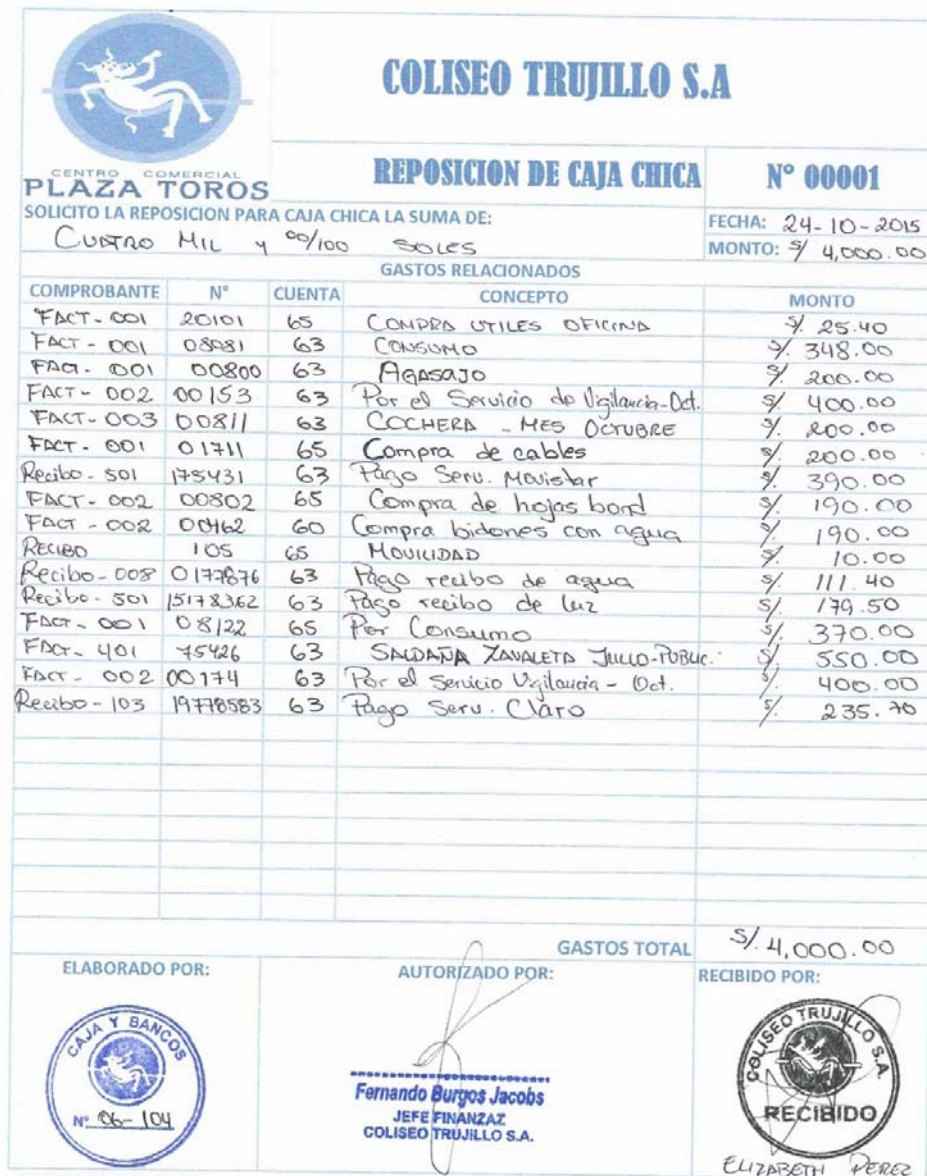 COLISEO TRUJILLO S.A
CENTRO COMERCIAL
PLAZA TOROS
REPOSICION DE CAJA CHICA
N° 00001
SOLICITO LA REPOSICION PARA CAJA CHICA LA SUMA DE:
FECHA: 24-10-2015
CUATRO MIL y 00/100 SOLES
MONTO: S/ 4,000.00
GASTOS RELACIONADOS
COMPROBANTE N° CUENTA CONCEPTO MONTO
FACT-001 20101 65 COMPRA UTILES OFICINA S/. 25.40
FACT-001 08081 63 CONSUMO S/. 348.00
FACT-001 00800 63 AGASAJO S/ 200.00
FACT-002 00153 63 Por el Servicio de Vigilancia-Oct. S/ 400.00
FACT-003 00811 63 COCHERA - MES OCTUBRE S/. 200.00
FACT-001 01711 65 Compra de cables S/. 200.00
Recibo-501 175431 63 Pago Serv. Movistar S/. 390.00
FACT-002 00802 65 Compra de hojas bond S/. 190.00
FACT-002 00462 60 Compra bidones con agua S/. 190.00
RECIBO 105 65 MOVILIDAD S/. 10.00
Recibo-008 0177876 63 Pago recibo de agua S/. 111.40
Recibo-501 15178362 63 Pago recibo de luz S/. 179.50
FACT-001 08122 65 Por Consumo S/. 370.00
FACT-401 75426 63 SALDAÑA ZAVALETA JULIO-PUBLIC. S/ 550.00
FACT-002 00174 63 Por el Servicio Vigilancia - Oct. S/. 400.00
Recibo-103 19778583 63 Pago Serv. Claro S/. 235.70
GASTOS TOTAL S/. 4,000.00
ELABORADO POR:
AUTORIZADO POR:
RECIBIDO POR:
CAJA Y BANCOS
N° 06-104
Fernando Burgos Jacobs
JEFE FINANZAZ
COLISEO TRUJILLO S.A.
COLISEO TRUJILLO S.A.
RECIBIDO
ELIZABETH PEREZ